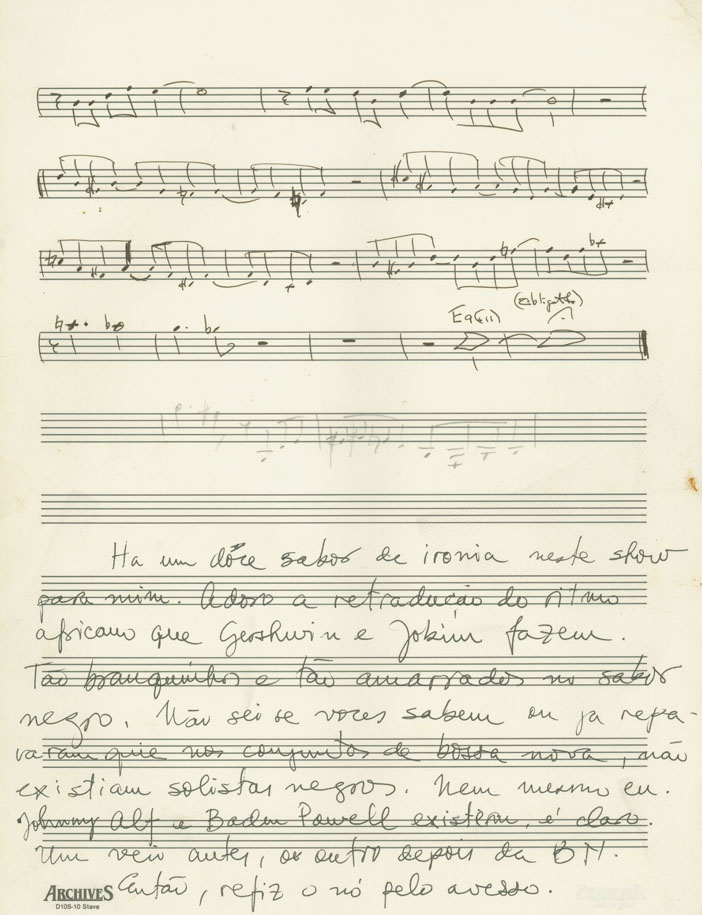 (obligatto)
E9(#11)
Ha um dôce sabor de ironia neste show
para mim. Adoro a retradução do ritmo
africano que Gershwin e Jobim fazem.
Tão branquinhos e tão amarrados no sabor
negro. Não sei se voces sabem ou ja repa-
varam que nos conjuntos de bossa nova, não
existiam solistas negros. Nem mesmo eu.
Johnny Alf e Baden Powell existem, é claro.
Um veio antes, o outro depois da BN.
Então, refiz o nó pelo avesso.
ARCHIVES
D10S-10 Stave